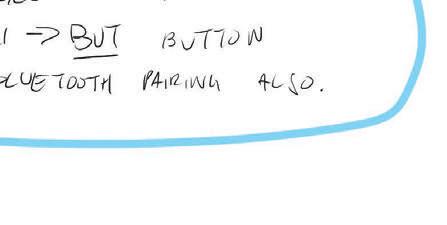 -> BUT BUTTON
LUETOOTH PAIRING ALSO.